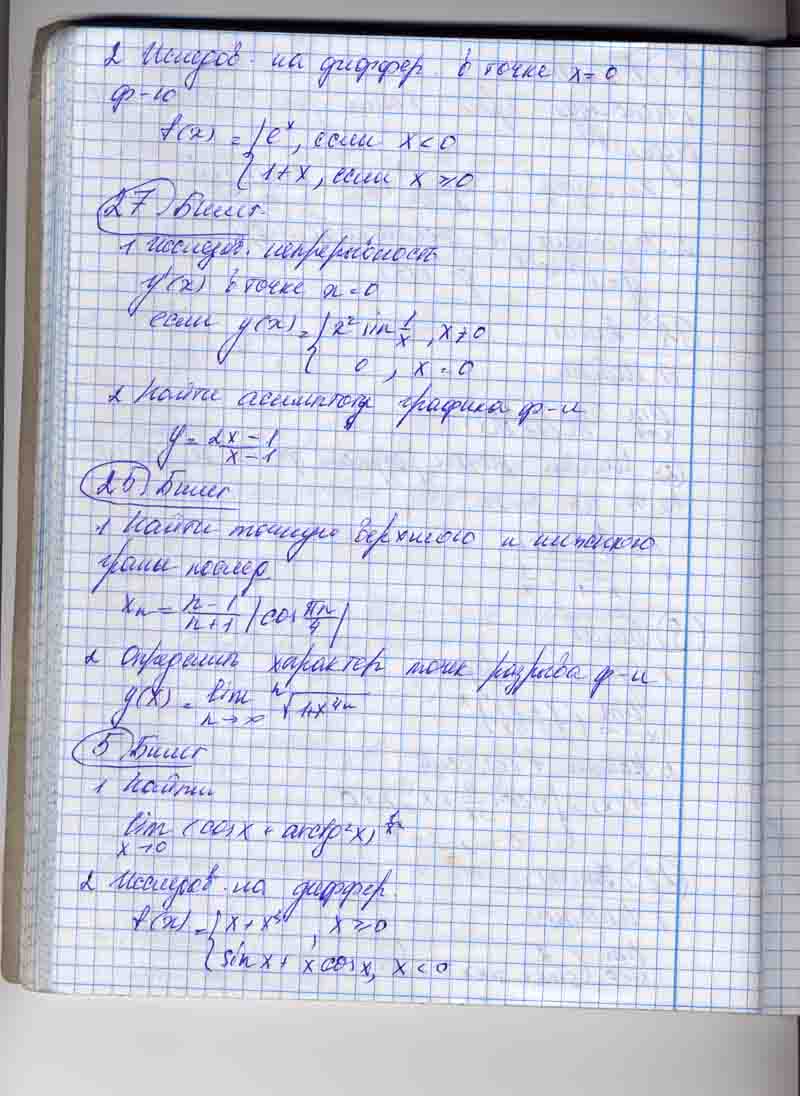 2 Исследов. на диффер. в точке x = 0
ф-ю
f(x) = { e^x, если x < 0
{ 1+x, если x ≥ 0
27) Билет
1 Исследов. непрерывность
y'(x) в точке x = 0
если y(x) = { x² sin 1/x, x ≠ 0
{ 0, x = 0
2 Найти асимптоту графика ф-и
y = (2x-1)/(x-1)
25) Билет
1 Найти точную верхнюю и нижнюю
грань послед.
x_n = (n-1)/(n+1) |cos πn/4|
2 Определить характер точек разрыва ф-и
y(x) = lim n→∞ ⁿ√(1+x^4n)
5) Билет
1 Найти
lim x→0 (cos x + arctg² x)
2 Исследов. на диффер.
f(x) = { x + x, x ≥ 0
{ sin x + x cos x, x < 0